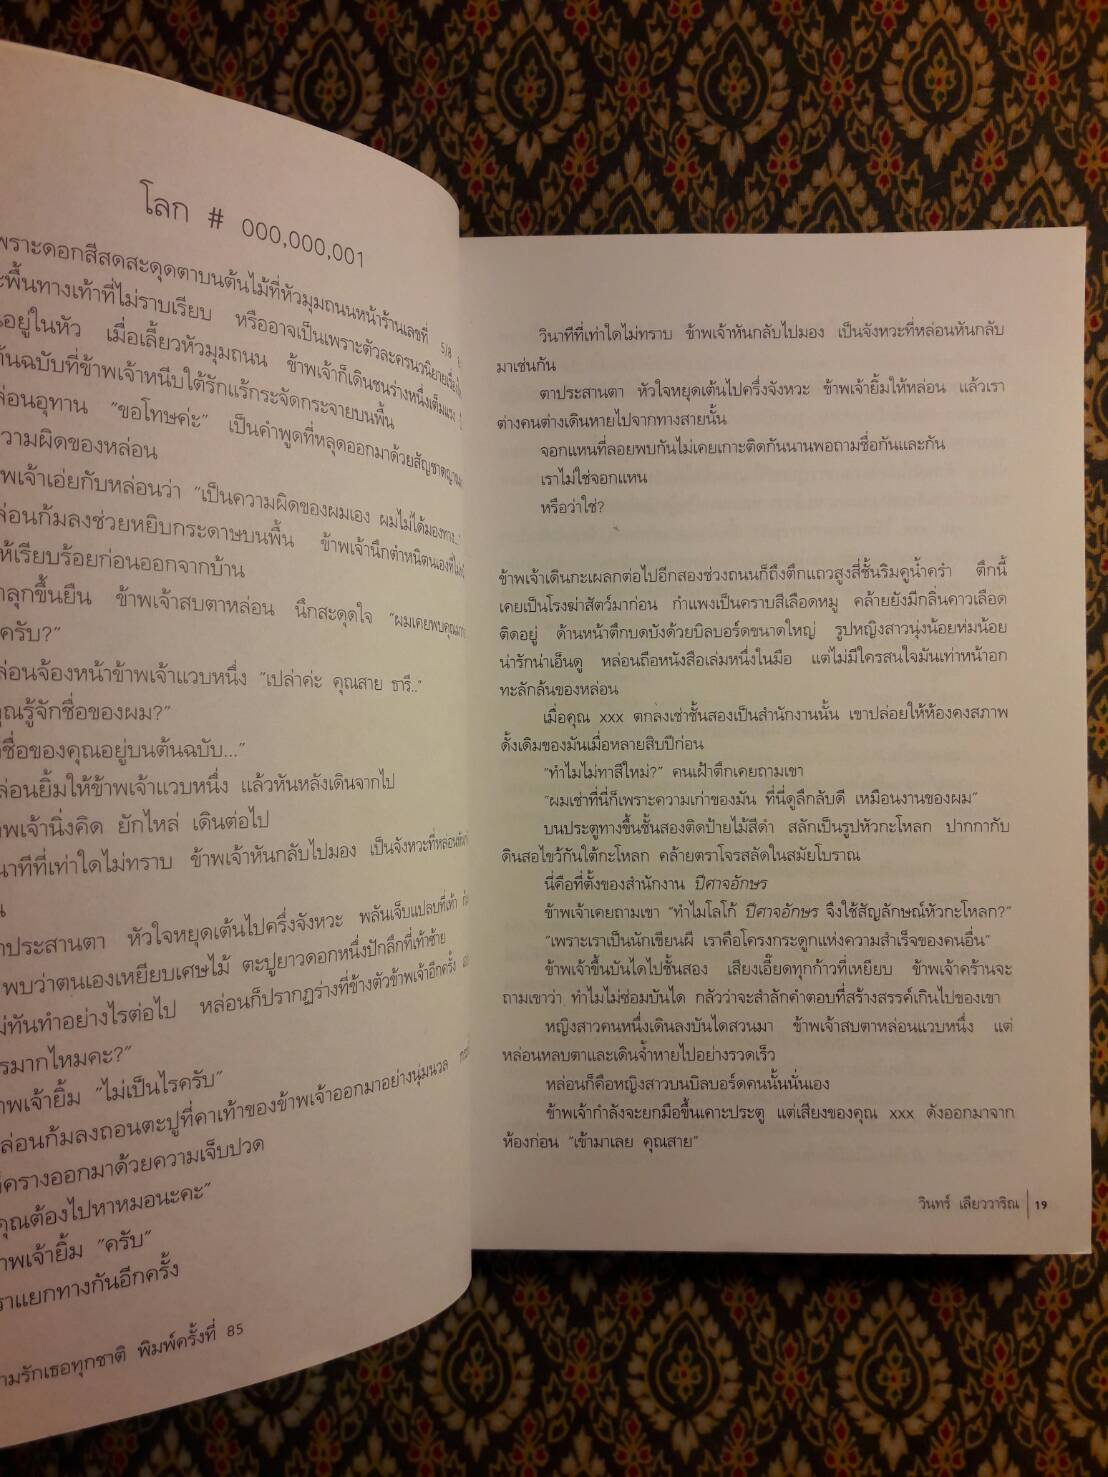 โลก # 000,000,001
พราะดอกสีสดสะดุดตาบนต้นไม้ที่หัวมุมถนนหน้าร้านเลขที่ 5/8
พื้นทางเท้าที่ไม่ราบเรียบ หรืออาจเป็นเพราะตัวละครนวนิยายเรื่อง
อยู่ในหัว เมื่อเลี้ยวหัวมุมถนน ข้าพเจ้าก็เดินชนร่างหนึ่งเต็มแรง
ต้นฉบับที่ข้าพเจ้าหนีบใต้รักแร้กระจัดกระจายบนพื้น
ล่อนอุทาน “ขอโทษค่ะ” เป็นคำพูดที่หลุดออกมาด้วยสัญชาตญาณ
ความผิดของหล่อน
พเจ้าเอ่ยกับหล่อนว่า “เป็นความผิดของผมเอง ผมไม่ได้มองทาง..
ล่อนก้มลงช่วยหยิบกระดาษบนพื้น ข้าพเจ้านึกตำหนิตนเองที่
ห้เรียบร้อยก่อนออกจากบ้าน
าลุกขึ้นยืน ข้าพเจ้าสบตาหล่อน นึกสะดุดใจ “ผมเคยพบคุณ
ครับ?”
ล่อนจ้องหน้าข้าพเจ้าแวบหนึ่ง “เปล่าค่ะ คุณสาย ธารี..”
คุณรู้จักชื่อของผม?”
ชื่อของคุณอยู่บนต้นฉบับ...”
ล่อนยิ้มให้ข้าพเจ้าแวบหนึ่ง แล้วหันหลังเดินจากไป
าพเจ้านิ่งคิด ยักไหล่ เดินต่อไป
นาทีที่เท่าใดไม่ทราบ ข้าพเจ้าหันกลับไปมอง เป็นจังหวะที่หล่อน
น
าประสานตา หัวใจหยุดเต้นไปครึ่งจังหวะ พลันเจ็บแปลบที่เท้า
พบว่าตนเองเหยียบเศษไม้ ตะปูยาวดอกหนึ่งปักลึกที่เท้าซ้าย
ม่ทันทำอย่างไรต่อไป หล่อนก็ปรากฏร่างที่ข้างตัวข้าพเจ้าอีกครั้ง
รมากไหมคะ?”
าพเจ้ายิ้ม “ไม่เป็นไรครับ”
ล่อนก้มลงถอนตะปูที่คาเท้าของข้าพเจ้าออกมาอย่างนุ่มนวล
ครางออกมาด้วยความเจ็บปวด
คุณต้องไปหาหมอนะคะ”
าพเจ้ายิ้ม “ครับ”
ราแยกทางกันอีกครั้ง
ามรักเธอทุกชาติ พิมพ์ครั้งที่ 85
วินาทีที่เท่าใดไม่ทราบ ข้าพเจ้าหันกลับไปมอง เป็นจังหวะที่หล่อนหันกลับ
มาเช่นกัน
ตาประสานตา หัวใจหยุดเต้นไปครึ่งจังหวะ ข้าพเจ้ายิ้มให้หล่อน แล้วเรา
ต่างคนต่างเดินหายไปจากทางสายนั้น
จอกแหนที่ลอยพบกันไม่เคยเกาะติดกันนานพอถามชื่อกันและกัน
เราไม่ใช่จอกแหน
หรือว่าใช่?
ข้าพเจ้าเดินกะเผลกต่อไปอีกสองช่วงถนนก็ถึงตึกแถวสูงสี่ชั้นริมคูน้ำครำ ตึกนี้
เคยเป็นโรงฆ่าสัตว์มาก่อน กำแพงเป็นคราบสีเลือดหมู คล้ายยังมีกลิ่นคาวเลือด
ติดอยู่ ด้านหน้าตึกบดบังด้วยบิลบอร์ดขนาดใหญ่ รูปหญิงสาวนุ่งน้อยห่มน้อย
น่ารักน่าเอ็นดู หล่อนถือหนังสือเล่มหนึ่งในมือ แต่ไม่มีใครสนใจมันเท่าหน้าอก
ทะลักล้นของหล่อน
เมื่อคุณ xxx ตกลงเช่าชั้นสองเป็นสำนักงานนั้น เขาปล่อยให้ห้องคงสภาพ
ดั้งเดิมของมันเมื่อหลายสิบปีก่อน
“ทำไมไม่ทาสีใหม่?” คนเฝ้าตึกเคยถามเขา
“ผมเช่าที่นี่ก็เพราะความเก่าของมัน ที่นี่ดูลึกลับดี เหมือนงานของผม”
บนประตูทางขึ้นชั้นสองติดป้ายไม้สีดำ สลักเป็นรูปหัวกะโหลก ปากกากับ
ดินสอไขว้กันใต้กะโหลก คล้ายตราโจรสลัดในสมัยโบราณ
นี่คือที่ตั้งของสำนักงาน ปีศาจอักษร
ข้าพเจ้าเคยถามเขา “ทำไมโลโก้ ปีศาจอักษร จึงใช้สัญลักษณ์หัวกะโหลก?”
“เพราะเราเป็นนักเขียนผี เราคือโครงกระดูกแห่งความสำเร็จของคนอื่น”
ข้าพเจ้าขึ้นบันไดไปชั้นสอง เสียงเอี๊ยดทุกก้าวที่เหยียบ ข้าพเจ้าคร้านจะ
ถามเขาว่า ทำไมไม่ซ่อมบันได กลัวว่าจะสำลักคำตอบที่สร้างสรรค์เกินไปของเขา
หญิงสาวคนหนึ่งเดินลงบันไดสวนมา ข้าพเจ้าสบตาหล่อนแวบหนึ่ง แต่
หล่อนหลบตาและเดินจ้ำหายไปอย่างรวดเร็ว
หล่อนก็คือหญิงสาวบนบิลบอร์ดคนนั้นนั่นเอง
ข้าพเจ้ากำลังจะยกมือขึ้นเคาะประตู แต่เสียงของคุณ xxx ดังออกมาจาก
ห้องก่อน “เข้ามาเลย คุณสาย”
วินทร์ เลียววาริณ | 19